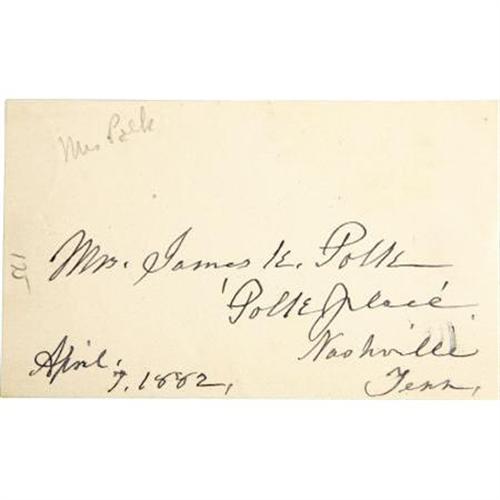 Mrs Polk
Mrs. James K. Polk
'Polk place'
Nashville
Tenn,
April.
7, 1882,
125